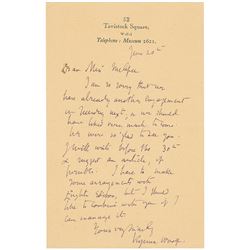 52
Tavistock Square,
W.C.1
Telephone: Museum 2621.
June 20th
Dear Miss McAfee
I am so sorry that we
have already another engagement
on Tuesday next, as we should
have liked very much to come.
We were so glad to see you.
I will write before the 30th
& suggest an article, if
possible. I have to make
some arrangements with
but I should
like to contribute with you if I
can manage it.
Yours very sincerely
Virginia Woolf